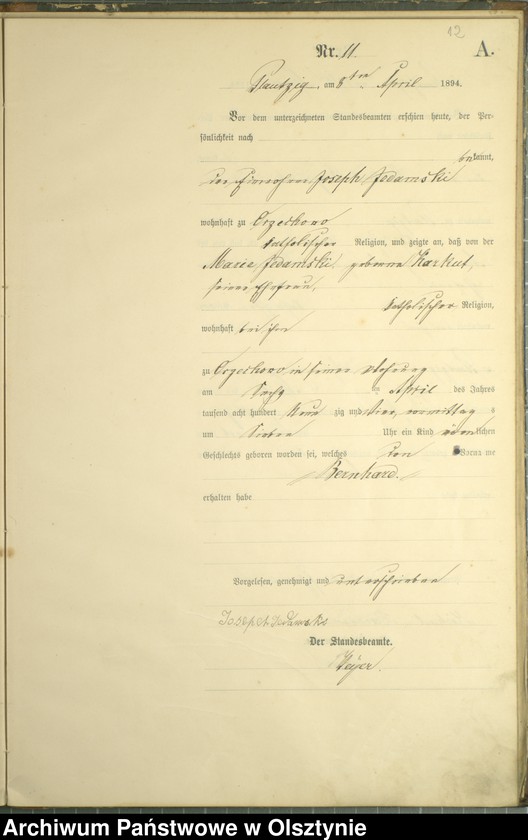 12
Nr. 11. A.
Plautzig, am 8ten April 1894.
Vor dem unterzeichneten Standesbeamten erschien heute, der Per-
sönlichkeit nach
bekannt,
der Einwohner Joseph Jedamski
wohnhaft zu Orzechowo
katholischer Religion, und zeigte an, daß von der
Marie Jedamski geborene Karkut,
seiner Ehefrau,
katholischer Religion,
wohnhaft bei ihm
zu Orzechowo in seiner Wohnung
am April des Jahres
tausend acht hundert Neun zig und vier, vormittag s
um Sieben Uhr ein Kind männlichen
Geschlechts geboren worden sei, welches den Vorna me
Bernhard.
erhalten habe
Vorgelesen, genehmigt und unterschrieben
Joseph Jedamski
Der Standesbeamte.
Archiwum Państwowe w Olsztynie